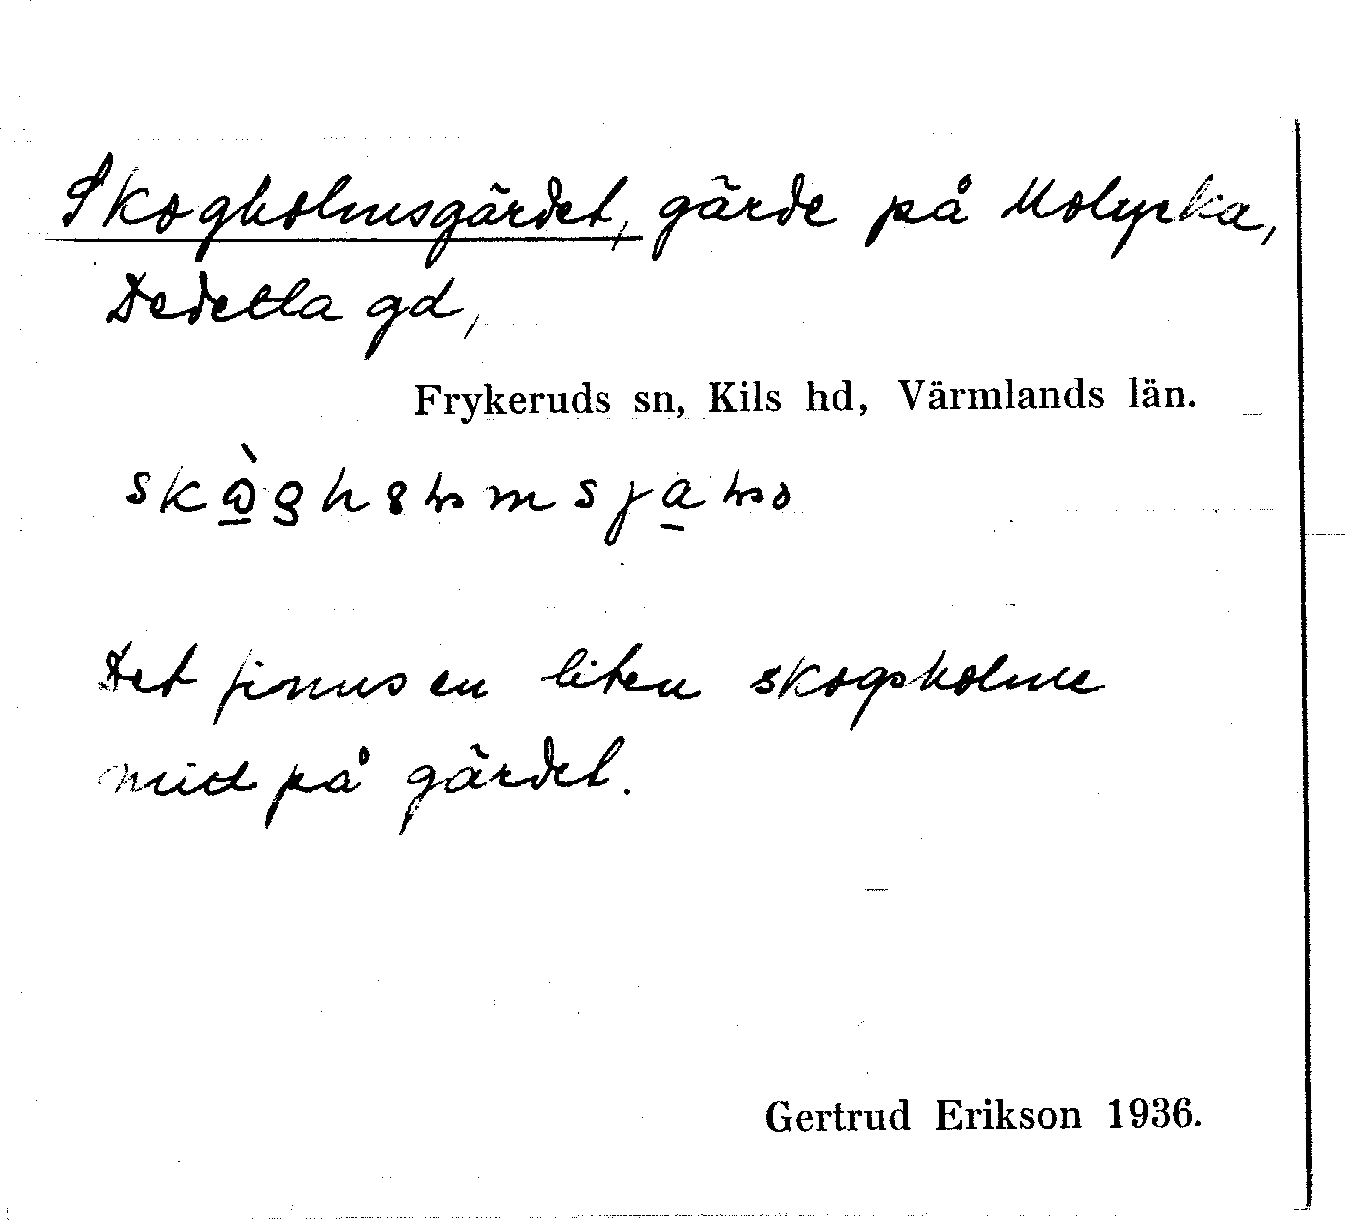 Skogholmsgärdet, gärde på Molycka,
Dedetla gd,
Frykeruds sn, Kils hd, Värmlands län.
Det finns en liten skogsholme
mitt på gärdet.
Gertrud Erikson 1936.